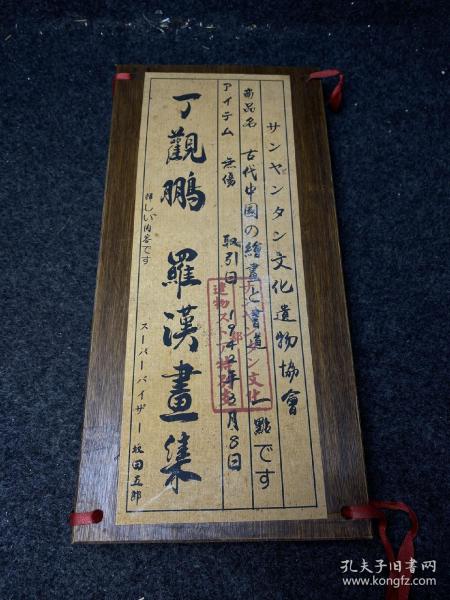 サンヤンタン文化遺物協會
商品名 古代中國の繪畫と書道 一點です
アイテム 無傷 取引日 1942年3月8日
丁觀鵬 羅漢畫集
詳しい内容です
スーパーバイザー 坂田五郎
孔夫子旧书网
www.kongfz.com